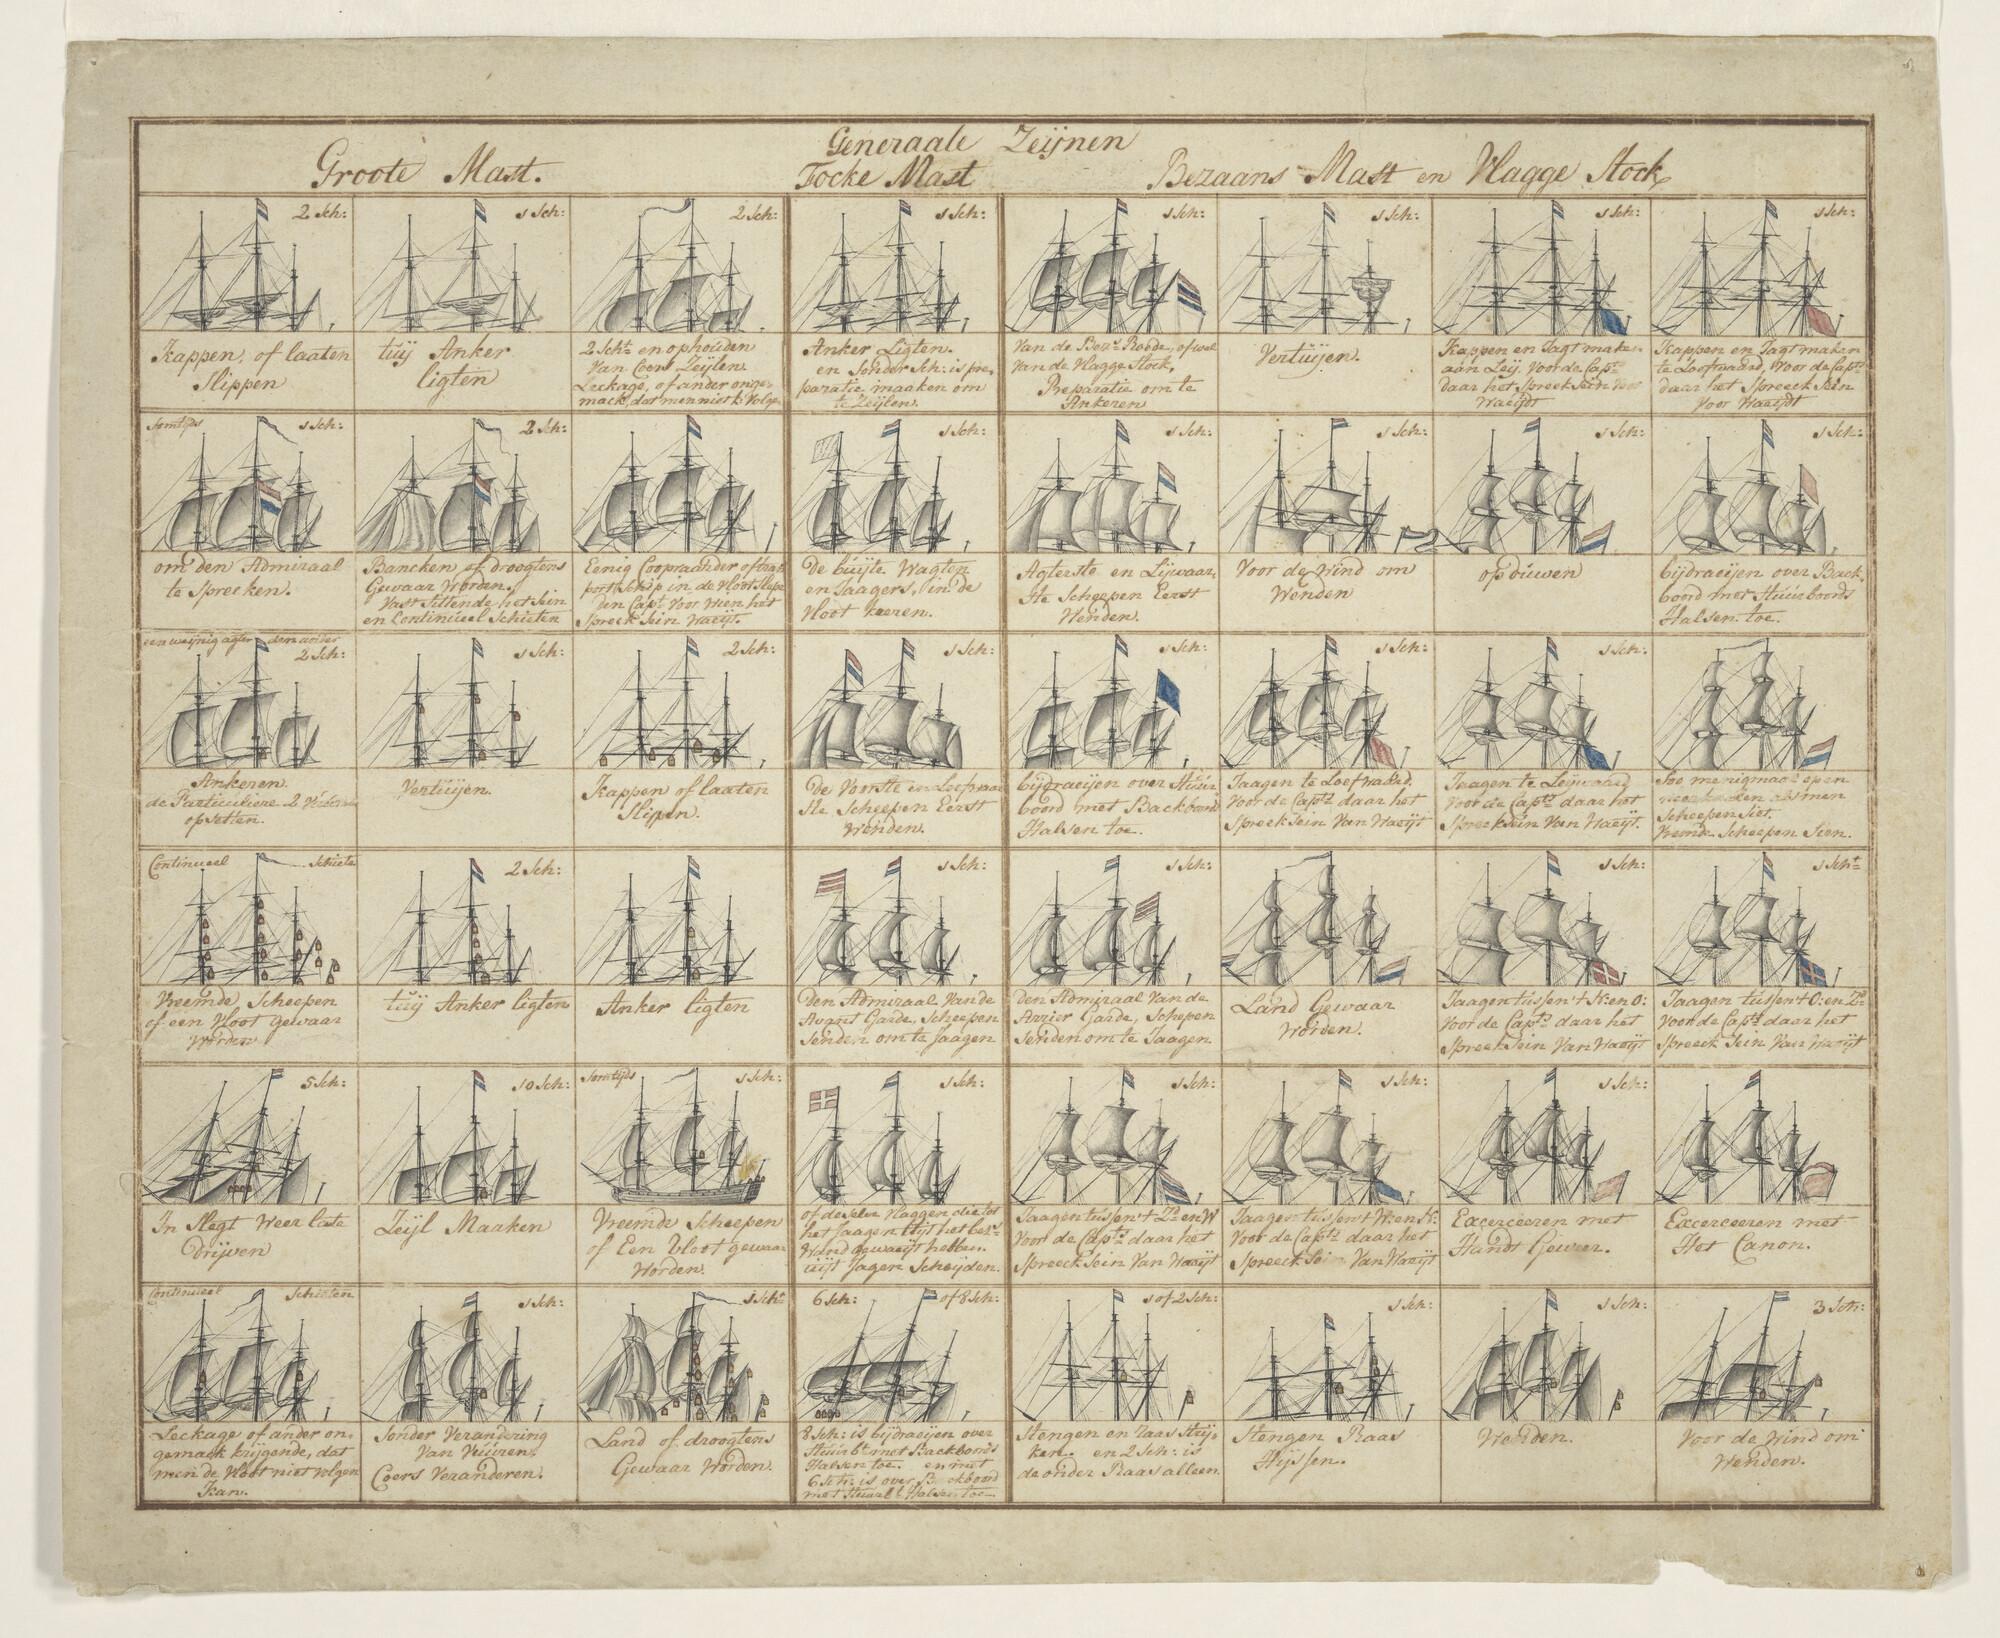 Generaale Zeijnen
Groote Mast.
Focke Mast
Bezaans Mast en Vlagge Stock
2 Sch:
Kappen, of laaten
Slippen
1 Sch:
tuij Anker
ligten
2 Sch:
2 Scht en ophouden
Van Coers Zeijlen
Leckage, of ander onge:
mack, dat men niet k Volge
1 Sch:
Anker Ligten.
en Sonder Sch: is pre
paratie maaken om
te Zeijlen.
1 Sch:
Van de Roede, of wel
Van de Vlagge Stock,
Preparatie om te
Ankeren
1 Sch:
Vertuijen.
1 Sch:
Kappen en Jagt maken
aan Leij. Voor de Captn
daar het Spreek Sein voor
Waeijdt
1 Sch:
Kappen en Jagt maken
te Loefwaard, Voor de Captn
daar het Spreeck Sein
Voor Waaijdt
Somtijds 1 Sch:
om den Admiraal
te Spreeken.
2 Sch:
Bancken of droogtens
Gewaar Worden.
Vast Sittende het Sein
en Continueel Schieten
1 Sch:
Eenig Coopvaarder of trans
port Schip in de Vloot Slepe
den Captn Voor wien het
Spreek Sein Waeijt.
1 Sch:
De buijte Wagten
en Jaagers, in de
Vloot keeren.
1 Sch:
Agterste en Lijwaar
ste Scheepen Eerst
Wenden.
1 Sch:
Voor de Wind om
Wenden
1 Sch:
op duwen
1 Sch:
bijdraeijen over Back
boord met Stuurboords
Halsen toe.
een weijnig agter den ander
2 Sch:
Ankeren.
de Particuliere 2
opsetten.
1 Sch:
Vertuijen.
2 Sch:
Kappen of laaten
Slippen.
1 Sch:
De Voorste en Loefwaar
ste Scheepen Eerst
Wenden.
1 Sch:
bijdraeijen over Stuur
boord met Backboord
Halsen toe.
1 Sch:
Jaagen te Loefwaard,
Voor de Captn daar het
Spreek Sein Van Waeijt
1 Sch:
Jaagen te Leijwaard
Voor de Captn daar het
Spreek Sein Van Waeijt.
Soo menigmaal open
als men
Scheepen Siet.
Vremde Scheepen Sien.
Continueel Schiete
Vreemde Scheepen
of een Vloot gewaar
Worden
2 Sch:
tuij Anker ligten
1 Sch:
Anker ligten
1 Sch:
Den Admiraal Van de
Avant Garde, Scheepen
Senden om te Jaagen
1 Sch:
Den Admiraal Van de
Arrier Garde, Schepen
Senden om te Jaagen
Land Gewaar
Worden.
1 Sch:
Jaagen tussen 't N: en O:
Voor de Captn daar het
Spreek Sein Van Waeijt
1 Scht
Jaagen tussen 't O: en Zd
Voor de Captn daar het
Spreeck Sein Van Waeijt
5 Sch:
In Slegt Weer laate
Drijven
10 Sch:
Zeijl Maaken
Somtijds 1 Sch:
Vreemde Scheepen
of Een Vloot gewaar
Worden.
1 Sch:
of deselve Vlaggen die tot
het Jaagen
gewaeijt hebben.
uijt Jagen Scheijden.
1 Sch:
Jaagen tussen 't Zd en W
Voor de Captn daar het
Spreeck Sein Van Waeijt
1 Sch:
Jaagen tussen 't W: en N:
Voor de Captn daar het
Spreeck Sein Van Waeijt
1 Sch:
Excerceeren met
Handt Geweer.
1 Sch:
Excerceeren met
Het Canon.
Continueel Schieten
Leckage of ander on:
gemack krijgende, dat
men de Vloot niet Volgen
kan.
1 Sch:
Sonder Verandering
Van Vuuren,
Coers Veranderen.
1 Scht
Land of droogtens
Gewaar Worden.
6 Sch: of 8 Sch:
8 Sch: is bijdraeijen over
Stuurbt met Backboords
Halsen toe. en met
6 Sch: is over Backboord
met Halsen toe
1 of 2 Sch:
Stengen en Raas Strij
ken. en 2 Sch: is
de onder Raas alleen
1 Sch:
Stengen Raas
Hijssen.
1 Sch:
Wenden.
3 Sch:
Voor de Wind om
Wenden.